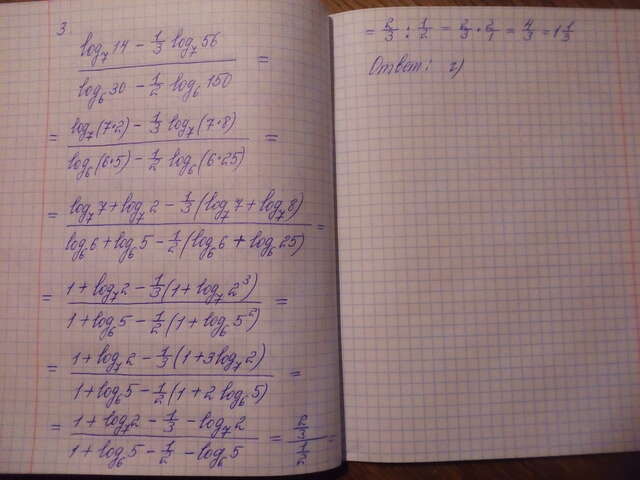 3.
(log₇14 − 1/3 log₇56) / (log₆30 − 1/2 log₆150) =
= (log₇(7·2) − 1/3 log₇(7·8)) / (log₆(6·5) − 1/2 log₆(6·25)) =
= (log₇7 + log₇2 − 1/3(log₇7 + log₇8)) / (log₆6 + log₆5 − 1/2(log₆6 + log₆25)) =
= (1 + log₇2 − 1/3(1 + log₇2³)) / (1 + log₆5 − 1/2(1 + log₆5²)) =
= (1 + log₇2 − 1/3(1 + 3log₇2)) / (1 + log₆5 − 1/2(1 + 2log₆5)) =
= (1 + log₇2 − 1/3 − log₇2) / (1 + log₆5 − 1/2 − log₆5) = (2/3) / (1/2) =
= 2/3 : 1/2 = 2/3 · 2/1 = 4/3 = 1 1/3
Ответ: г)